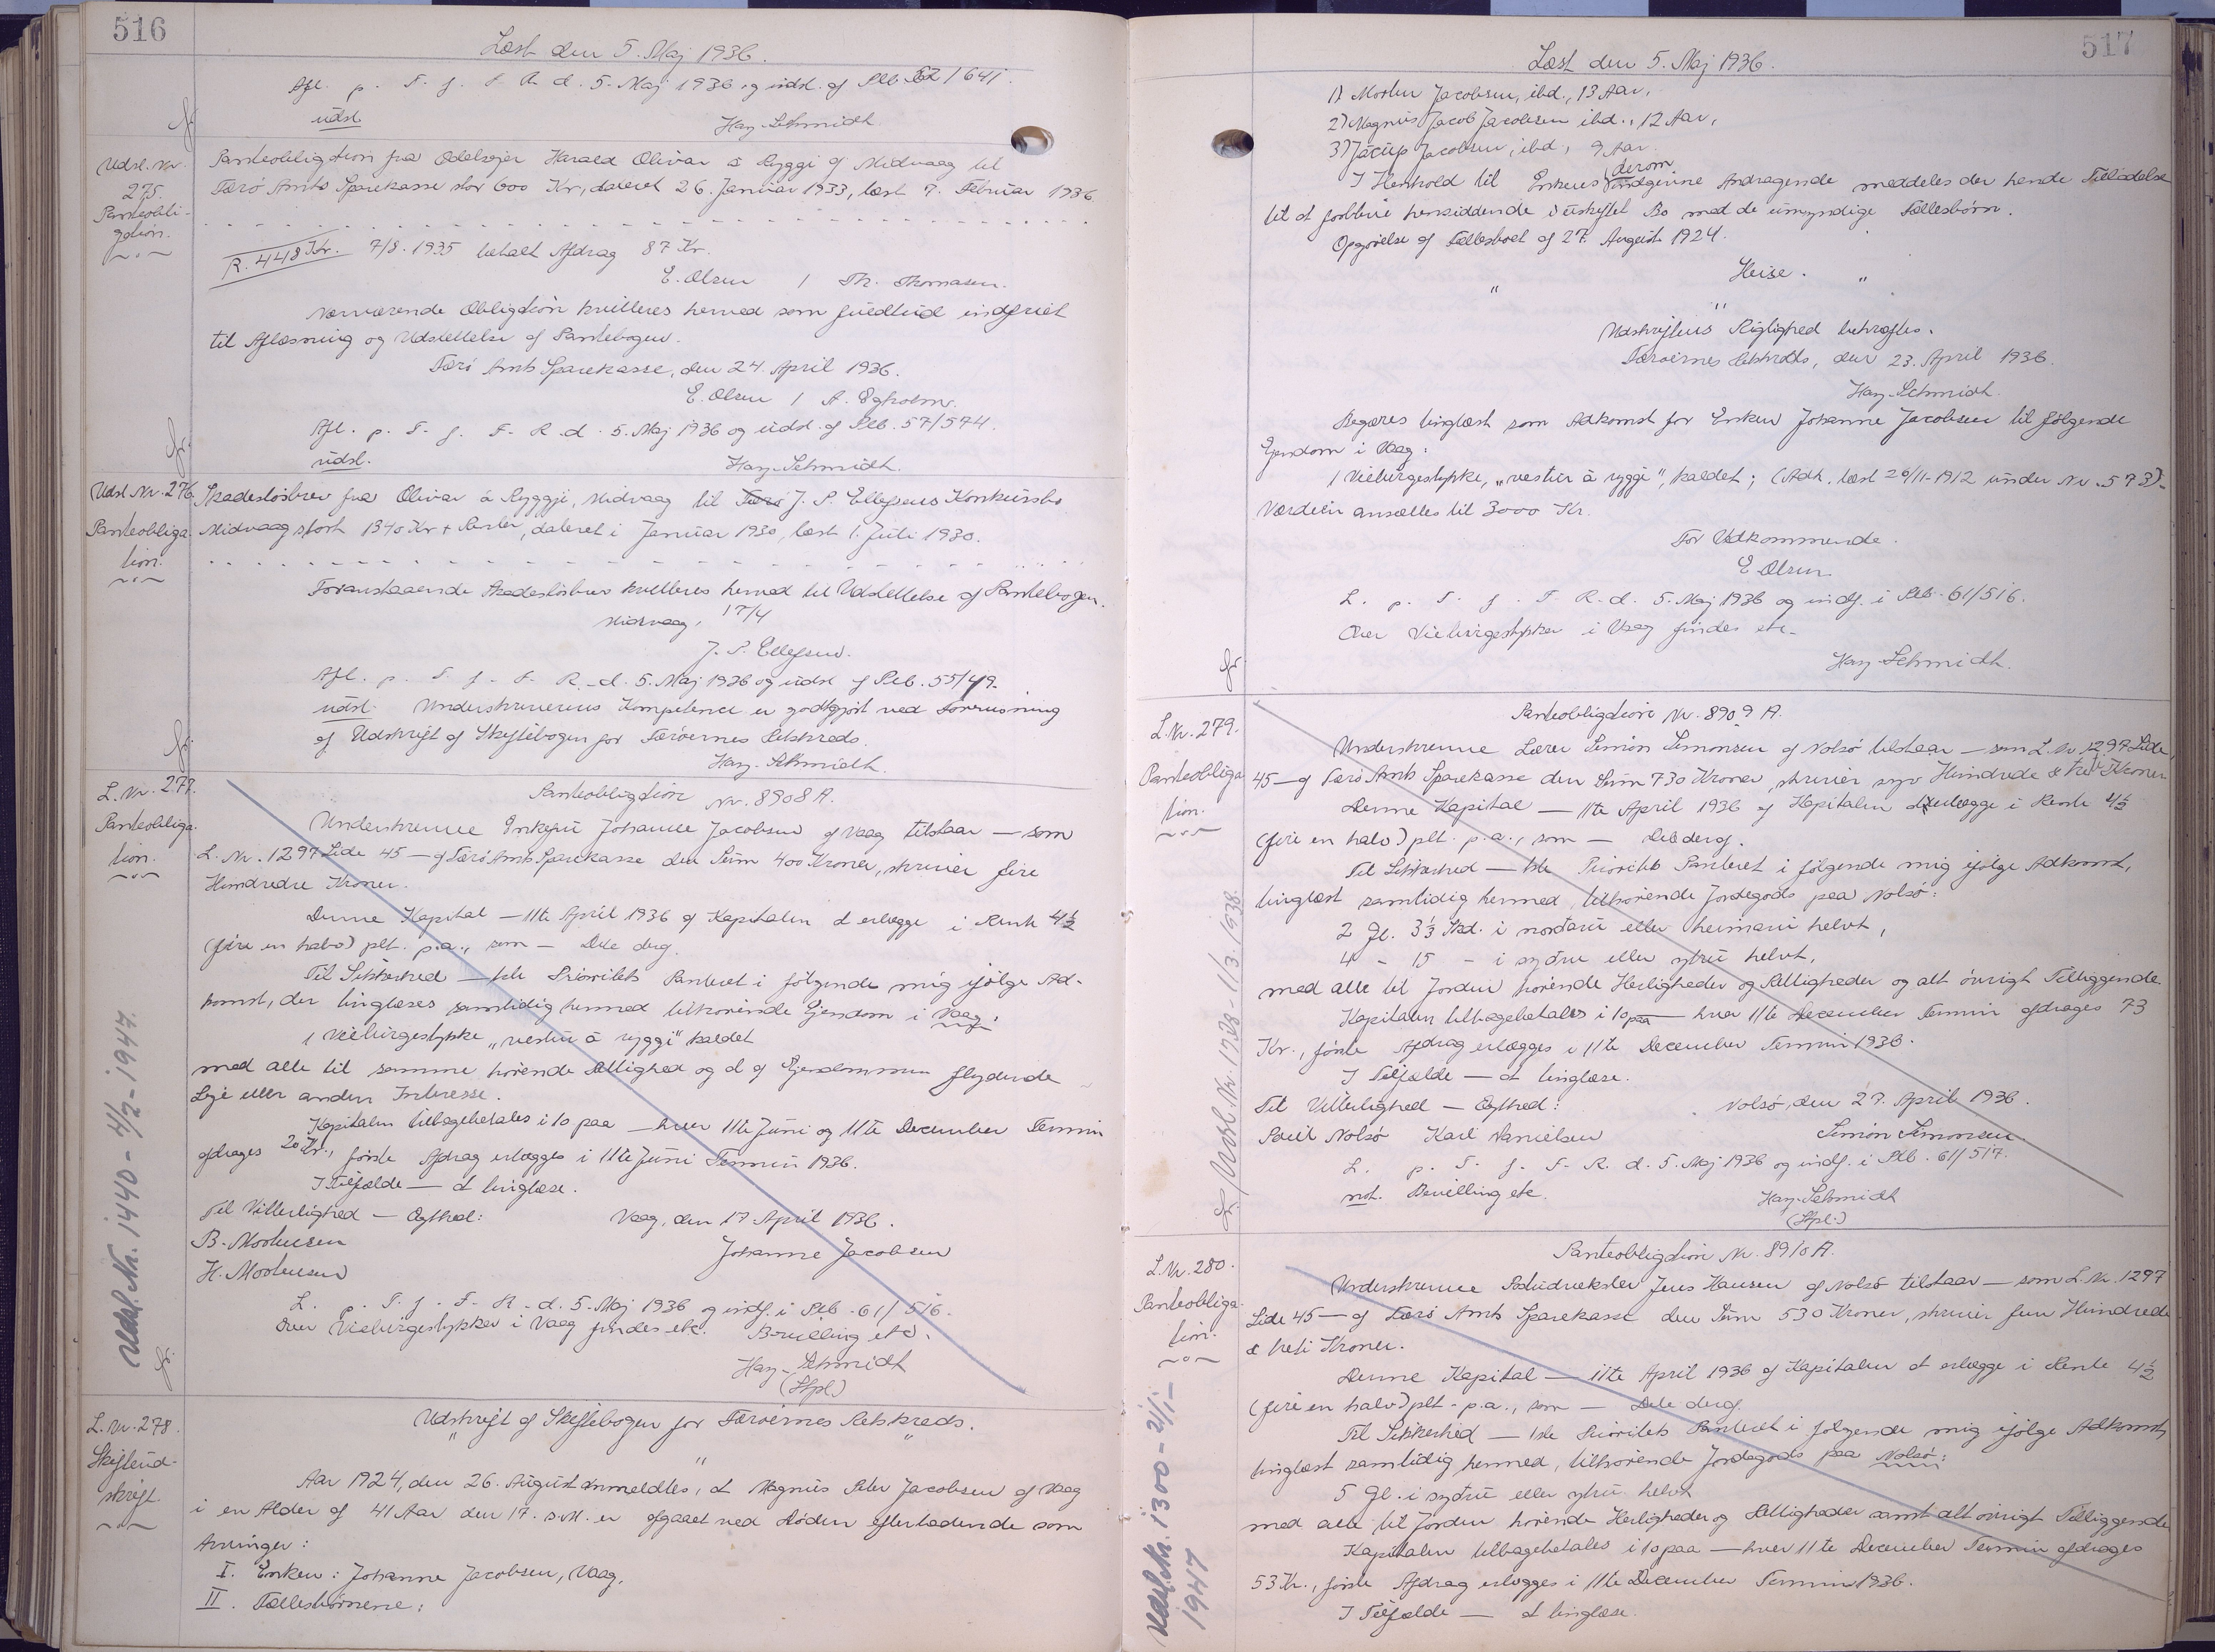 516
Læst den 5. Maj 1936.
Afl. p. T. f. F. R. d. 5. Maj 1936 og udsl. af Pkb 52/641.
udsl. Hary-Schmidt.
Udsl. Nr. 275. Panteobligation.
Panteobligation fra Odelsejer Harald Olivar á Ryggi af Midvaag til
Færø Amts Sparekasse stor 600 Kr., dateret 26. Januar 1933, læst 7. Februar 1936
R. 448 Kr. 7/8. 1935 betalt Afdrag 87 Kr.
E. Olsen / Th. Thomasen.
Nærværende Obligation kvitteres herved som fuldtud indfriet
til Aflæsning og Udslettelse af Pantebogen.
Færø Amts Sparekasse, den 24. April 1936.
E. Olsen / A.
Afl. p. T. f. F. R. d. 5. Maj 1936 og udsl. af Pkb. 57/574.
udsl. Hary-Schmidt.
Udsl. Nr. 276 Panteobligation.
Skadesløsbrev fra Olivar á Ryggji, Midvaag til Færø J. P. Ellefsens Konkursbo
Midvaag stort 1340 Kr + Renter, dateret i Januar 1930, læst 1. Juli 1930.
Foranstaaende Skadesløsbrev kvitteres herved til Udslettelse af Pantebogen.
Midvaag, 17/4
J. P. Ellefsen.
Afl. p. T. f. F. R. d. 5. Maj 1936 og udsl af Pkb. 55/49.
udsl. Underskriverens Kompetence er godtgjort ved Forevisning
af Udskrift af Skiftebogen for Færøernes Retskreds.
Hary-Schmidt.
L. Nr. 277. Panteobligation.
Panteobligation Nr. 8908 A.
Underskrevne Enkefru Johanne Jacobsen af Vaag tilstaar — som
L. Nr. 1297 Side 45 — af Færø Amts Sparekasse den Sum 400 Kroner, skriver fire
Hundrede Kroner.
Denne Kapital — 11te April 1936 af Kapitalen at erlægge i Rente 4½
(fire en halv) pCt. p.a., som — Dele deraf.
Til Sikkerhed — 1ste Prioritets Panteret i følgende mig ifølge Ad-
komst, der tinglæses samtidig hermed tilhørende Ejendom i Vaag:
1 Viebürgestykke „vestur á ryggi" kaldet
med alle til samme hørende Rettighed og al af Ejendommen flydende
Leje eller anden Interesse.
Kapitalen tilbagebetales i 10 paa — hver 11te Juni og 11te December Termin
afdrages 20 Kr., første Afdrag erlægges i 11te Juni Termin 1936.
I Tilfælde — at tinglæse.
Til Vitterlighed — Ægthed: Vaag, den 17 April 1936.
B. Mortensen Johanne Jacobsen
H. Mortensen
L. p. T. f. F. R. d. 5. Maj 1936 og indf. i Pkb. 61/516.
Over Viebürgestykker i Vaag findes etc. Bevilling etc.
Hary-Schmidt
(Stpl.)
Udsl. Nr. 1440 - 4/2 - 1947.
L. Nr. 278. Skifteudskrift.
Udskrift af Skiftebogen for Færøernes Retskreds.
Aar 1924, den 26. August anmeldtes, at Magnus Peter Jacobsen af Vaag
i en Alder af 41 Aar den 17. s.M. er afgaaet ved Døden efterladende som
Arvinger:
I. Enken: Johanne Jacobsen, Vaag,
II. Fællesbørnene:
517
Læst den 5. Maj 1936.
1) Morten Jacobsen, ibd., 13 Aar,
2) Magnus Jacob Jacobsen ibd., 12 Aar,
3) Jácup Jacobsen, ibd., 9 Aar.
I Henhold til Enkens derom indgivne Andragende meddeles der hende Tilladelse
til at forblive hensiddende i uskiftet Bo med de umyndige Fællesbørn.
Opgørelse af Fællesboet af 27. August 1924.
Heise.
Udskriftens Rigtighed bekræftes.
Færøernes Retskreds, den 23. April 1936.
Hary-Schmidt.
Begæres tinglæst som Adkomst for Enken Johanne Jacobsen til følgende
Ejendom i Vaag:
1 Viebürgestykke, „vestur á ryggi", kaldet; (Adk. læst 20/11-1912 under Nr. 573).
Værdien ansættes til 3000 Kr.
For Vedkommende.
E Olsen
L. p. T. f. F. R. d. 5. Maj 1936 og indf. i Pkb. 61/516.
Over Viebürgestykker i Vaag findes etc.
Hary-Schmidt.
L. Nr. 279. Panteobligation.
Panteobligation Nr. 8909 A.
Underskrevne Lærer Simon Simonsen af Nolsø tilstaar — som L. Nr. 1297 Side
45 — af Færø Amts Sparekasse den Sum 730 Kroner, skriver syv Hundrede & tredi Kroner
Denne Kapital — 11te April 1936 af Kapitalen at erlægge i Rente 4½
(fire en halv) pCt. p.a., som — Dele deraf.
Til Sikkerhed — 1ste Prioritets Panteret i følgende mig ifølge Adkomst,
tinglæst samtidig hermed, tilhørende Jordegods paa Nolsø:
2 Gl. 3⅓ Skd. i norðaru eller heimaru helvt,
4 - 15 - i syðru eller ytru helvt,
med alle til Jorden hørende Herligheder og Rettigheder og alt øvrigt Tilliggende.
Kapitalen tilbagebetales i 10 paa — hver 11te December Termin afdrages 73
Kr., første Afdrag erlægges i 11te December Termin 1936.
I Tilfælde — at tinglæse.
Til Vitterlighed — Ægthed: Nolsø, den 27. April 1936.
Poul Nolsø Karl Danielsen Simon Simonsen.
L. p. T. f. F. R. d. 5. Maj 1936 og indf. i Pkb. 61/517.
not. Bevilling etc. Hary-Schmidt
(Stpl.)
Udsl. Nr. 1728 - 1/3. 1938.
L. Nr. 280. Panteobligation.
Panteobligation Nr. 8910 A.
Underskrevne Jens Hansen af Nolsø tilstaar — som L. Nr. 1297
Side 45 — af Færø Amts Sparekasse den Sum 530 Kroner, skriver fem Hundrede
& treti Kroner.
Denne Kapital — 11te April 1936 af Kapitalen at erlægge i Rente 4½
(fire en halv) pCt. p.a., som — Dele deraf.
Til Sikkerhed — 1ste Prioritets Panteret i følgende mig ifølge Adkomst,
tinglæst samtidig hermed, tilhørende Jordegods paa Nolsø:
5 Gl. i syðru eller ytru helvt
med alle til Jorden hørende Herligheder og Rettigheder samt alt øvrigt Tilliggende
Kapitalen tilbagebetales i 10 paa — hver 11te December Termin afdrages
53 Kr., første Afdrag erlægges i 11te December Termin 1936.
I Tilfælde — at tinglæse.
Udsl. Nr. 1300 - 21/1 - 1947